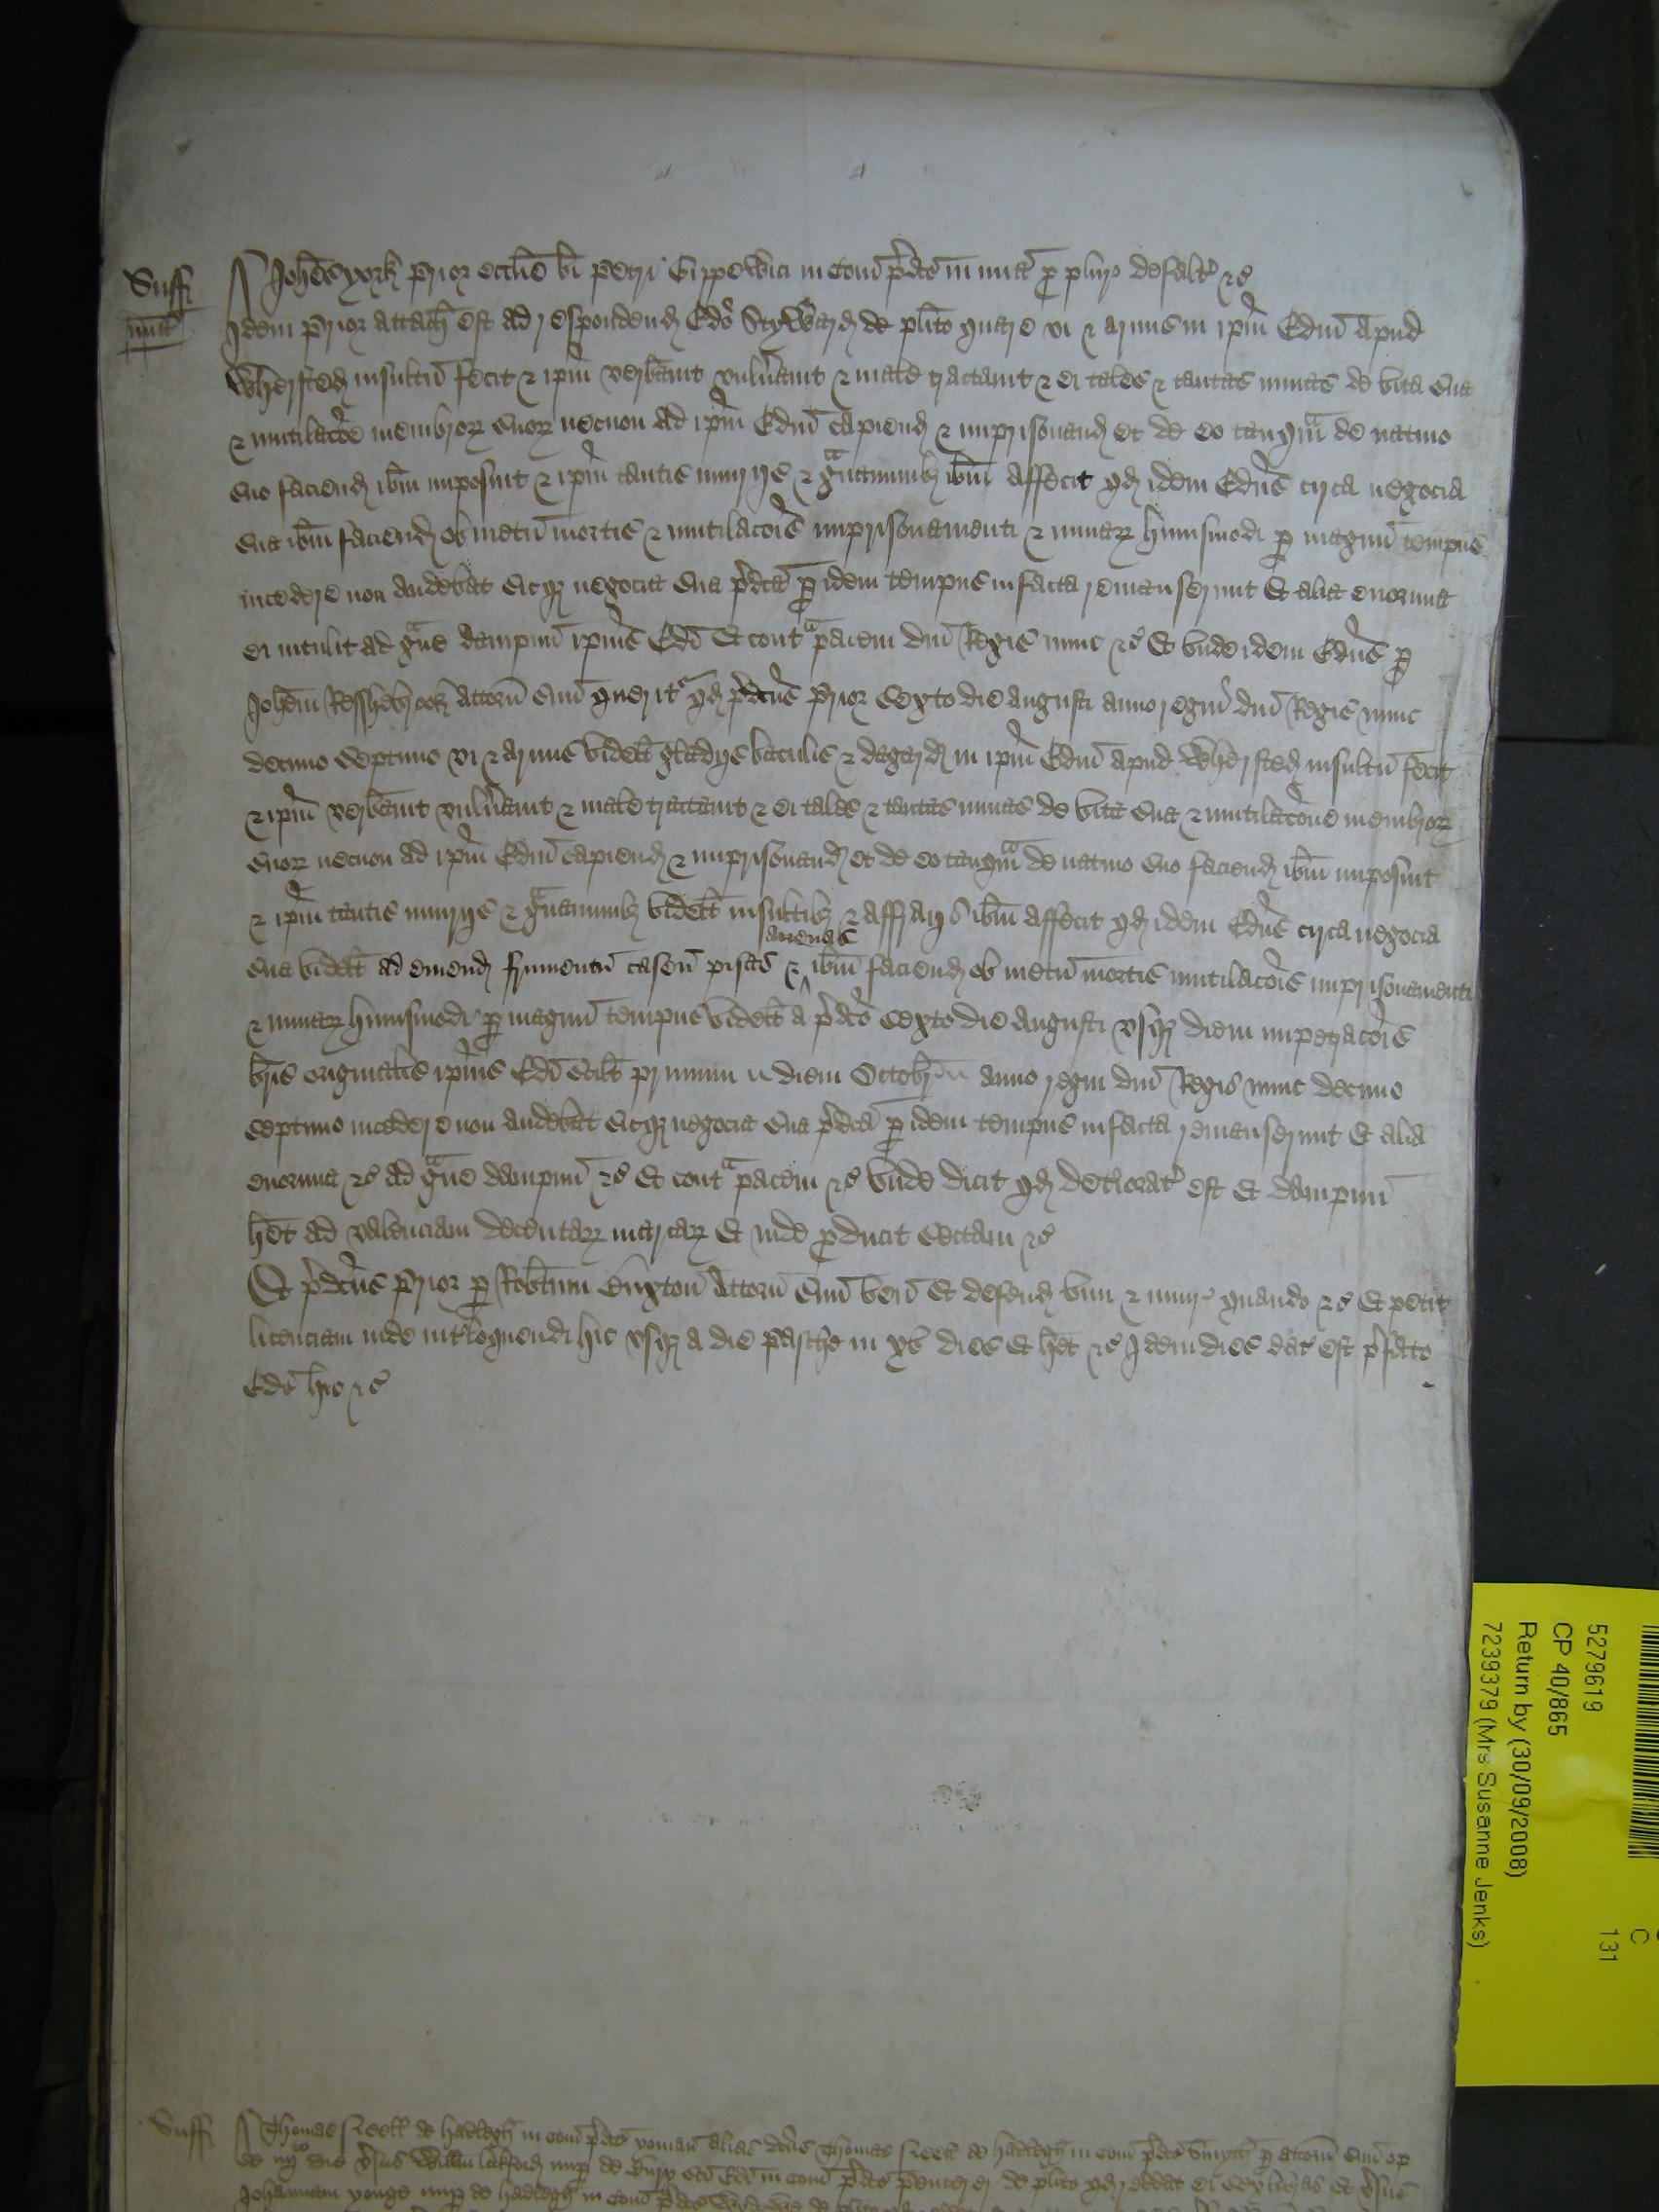 Suff
mīa
Joh̄es york Prior eccl̄ie bī Petri Gippewici in Com̄ p̄dc̄o in mīa p̄ plur̉ defalt̉ ⁊c̄
Idem Prior attach̄ est ad respondend Ed̄o Styward de plīto quare vi ⁊ armis in ip̄m Edm̄ apud
Whersted insultū fecit ⁊ ip̄m verb̄auit vuln̄auit ⁊ male tractauit ⁊ ei tales ⁊ tantas minas de vita sua
⁊ mutilac̄oe membroꝝ suoꝝ necnon ad ip̄m Edm̄ capiend ⁊ imprisonand et de eo tanqᵃm de natiuo
suo faciend ib̄m imposuit ⁊ ip̄m tantis iniurijs ⁊ gᵃuaminibꝫ ib̄m affecit qd idem Edūs circa negocia
sua ib̄m faciend ob metū mortis ⁊ mutilac̄ois imprisonamenti ⁊ minaꝝ huiusmodi ꝑ magnū tempus
incedere non audebat sicqꝫ negocia sua p̄dc̄a ꝑ idem tempus infacta remanserunt Et alia enormia
ei intulit ad gᵃue dampnū ip̄ius Ed̄i Et contᵃ pacem dn̄i Regis nunc ⁊c̄ Et vnde idem Edūs ꝑ
Joh̄em Russhebrook attorn̄ suū querit̉ qd p̄dc̄us Prior sexto die Augusti anno regni dn̄i Regis nunc
decimo septimo vi ⁊ armis videlt̄ gladijs baculis ⁊ dagard in ip̄m Edm̄ apud Whersted insultū fecit
⁊ ip̄m verb̄auit vuln̄auit ⁊ male tractauit ⁊ ei tales ⁊ tantas minas de vita sua ⁊ mutilac̄one membroꝝ
suoꝝ necnon ad ip̄m Edm̄ capiend ⁊ imprisonand et de eo tanqᵃm de natiuo suo faciend ib̄m imposuit
⁊ ip̄m tantis iniurijs ⁊ gᵃuaminibꝫ videlt̄ insultibꝫ ⁊ affrays ib̄m affecit qd idem Edūs circa negocia
auenas
sua videlt̄ ad emend frumentū caseū pisas ⁊ ib̄m faciend ob metū mortis mutilac̄ois imprisonamenti
⁊ minaꝝ huiusmodi ꝑ magnū tempus videlt̄ a p̄dc̄o sexto die Augusti vsqꝫ diem impetrac̄ois
br̄is originalis ip̄ius Ed̄i scilt̄ primum diem Octobr̄ anno regni dn̄i Regis nunc decimo
septimo incedere non audebat sicqꝫ negocia sua p̄dc̄a ꝑ idem tempus infacta remanserunt Et alia
enormia ⁊c̄ ad gᵃue dampnū ⁊c̄ Et contᵃ pacem ⁊c̄ vnde dicit qd det̉iorat̉ est Et dampnū
h̄et ad valenciam ducentaꝝ marcaꝝ Et inde ꝓducit sectam ⁊c̄
Et p̄dc̄us Prior ꝑ Rob̄tum Buxton̄ attorn̄ suū ven̄ Et defend vim ⁊ iniur̉ quando ⁊c̄ Et petit
licenciam inde int̉loquendi hic vsqꝫ a die Pasche in xv dies Et h̄et ⁊c̄ Idem dies dat̉ est p̄fato
Ed̄o hic ⁊c̄
Suff
Thomas Reoll de Hadlegh̄ in Com̄ p̄dc̄o yoman alias dc̄us Thomas Reoll de Hadlegh̄ in Com̄ p̄dc̄o Smyth ꝑ attorn̄ suū op
se iiijto die v̄sus Willm̄ nup̄ de Bury sc̄i Ed̄i in Com̄ p̄dc̄o de plīto qd reddat ei Et v̄sus
Johannem yonge nup̄ de Hadlegh̄ in Com̄ p̄dc̄o de plīto
5279619
CP 40/865
Return by (30/09/2008)
7239379 (Mrs Susanne Jenks)
C
131